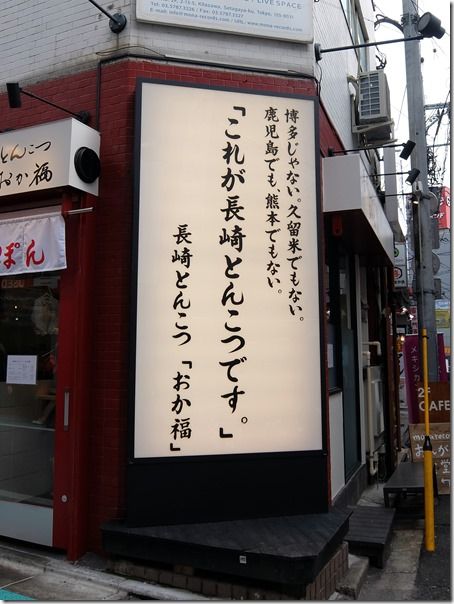 博多じゃない。久留米でもない。
鹿児島でも、熊本でもない。
「これが長崎とんこつです。」
長崎とんこつ「おか福」
とんこつ
おか福
ぽん
LIVE SPACE
Kitazawa, Setagaya-ku, Tokyo,
03.5787.3326 / Fax: 03.5787.3327
info@mona-records.com
メキシカン
2F
CAFE